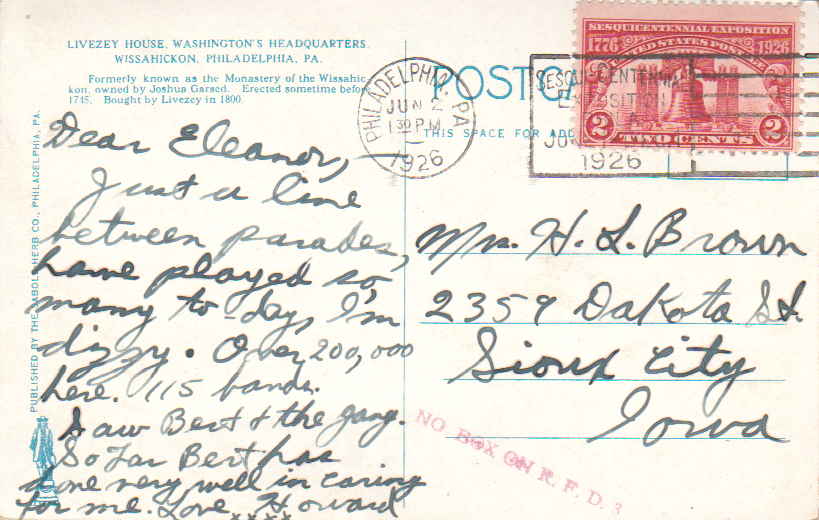 LIVEZEY HOUSE, WASHINGTON'S HEADQUARTERS.
WISSAHICKON, PHILADELPHIA, PA.
Formerly known as the Monastery of the Wissahic-
kon, owned by Joshua Garsed. Erected sometime before
1745. Bought by Livezey in 1800.
PUBLISHED BY THE HERB CO., PHILADELPHIA, PA.
Dear Eleanor,
Just a line
between parades,
have played so
many to-day, I'm
dizzy. Over 200,000
here. 115 bands.
Saw Bert & the gang.
So far Bert has
done very well in caring
for me. Love Howard
xxxx
POSTCA
THIS SPACE FOR ADD
PHILADELPHIA, PA.
JUN 2
1 30 PM
1926
SESQUICENTENNIAL
EXPOSITION
JUN
1926
SESQUICENTENNIAL EXPOSITION
1776 1926
UNITED STATES POSTAGE
2 TWO CENTS 2
Mrs. H. L. Brown
2359 Dakota St.
Sioux City
Iowa
NO BOX ON R. F. D. 3